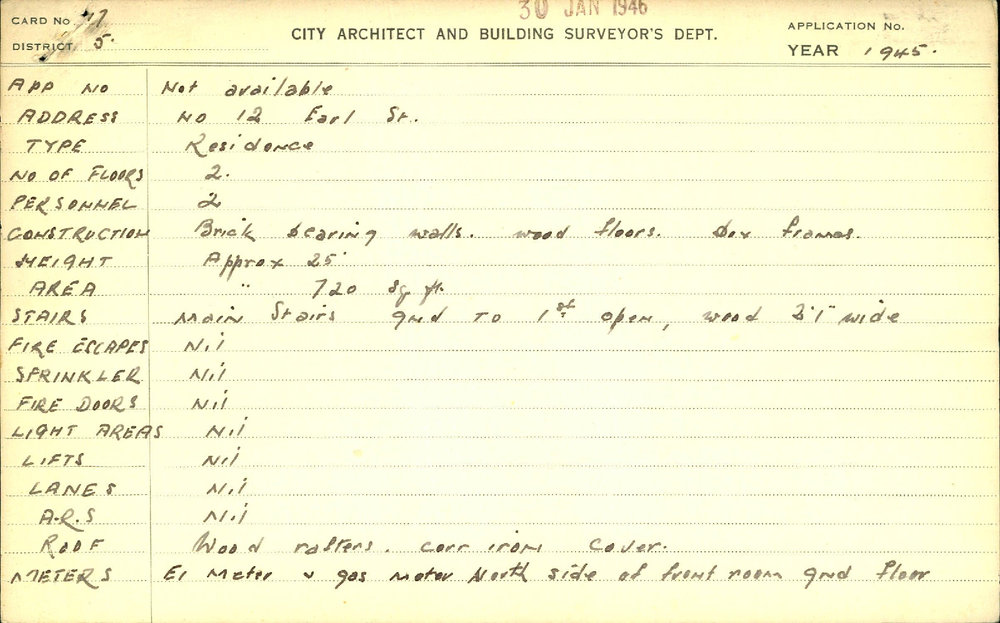 30 JAN 1946
CARD No. 47
DISTRICT 5.
CITY ARCHITECT AND BUILDING SURVEYOR'S DEPT.
APPLICATION No.
YEAR 1945.
APP NO Not available
ADDRESS NO 12 Earl St.
TYPE Residence
NO OF FLOORS 2.
PERSONNEL 2
CONSTRUCTION Brick bearing walls. wood floors. Box frames.
HEIGHT Approx 25'
AREA " 720 sq ft.
STAIRS Main Stairs gnd to 1st open, wood wide
FIRE ESCAPES Nil
SPRINKLER Nil
FIRE DOORS Nil
LIGHT AREAS Nil
LIFTS Nil
LANES Nil
A.R.S Nil
ROOF Wood rafters. corr iron cover.
METERS El Meter & gas meter North side of front room gnd floor